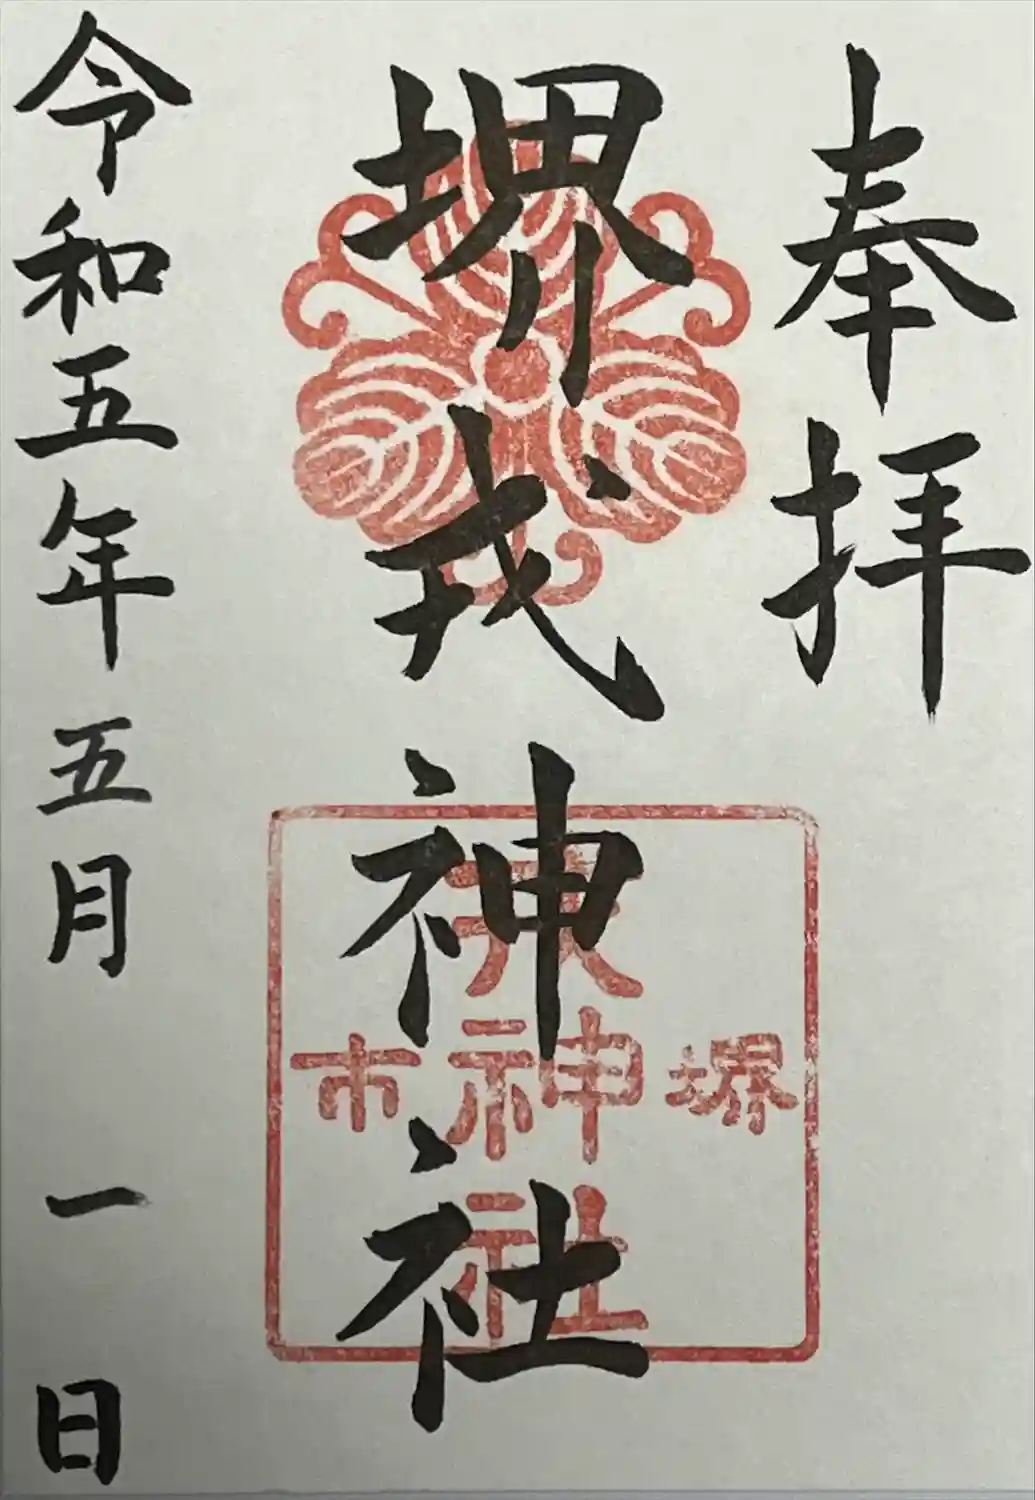 奉拝
堺戎神社
堺
天神社
市
令和五年五月一日